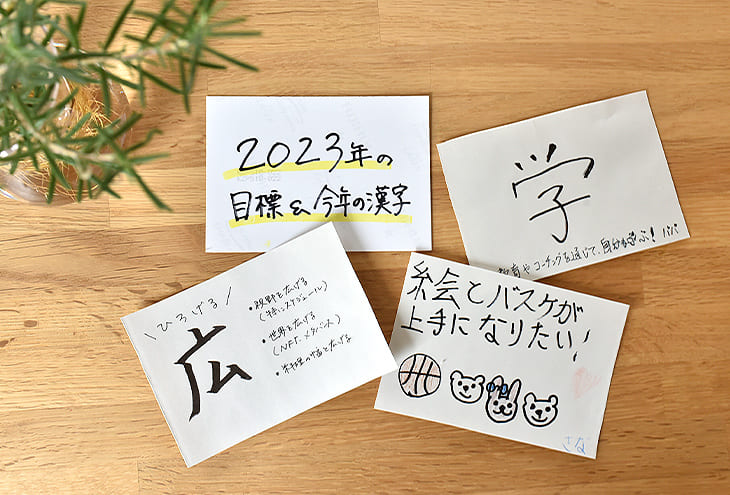 2023年の
目標&今年の漢字
学
教育やコーチングを通じて、自分も学ぶ! パパ
\ひろげる/
広
・視野を広げる
(特にスケジュール)
・世界を広げる
(NFT、メタバース)
・料理の幅を広げる
絵とバスケが
上手になりたい!
さな